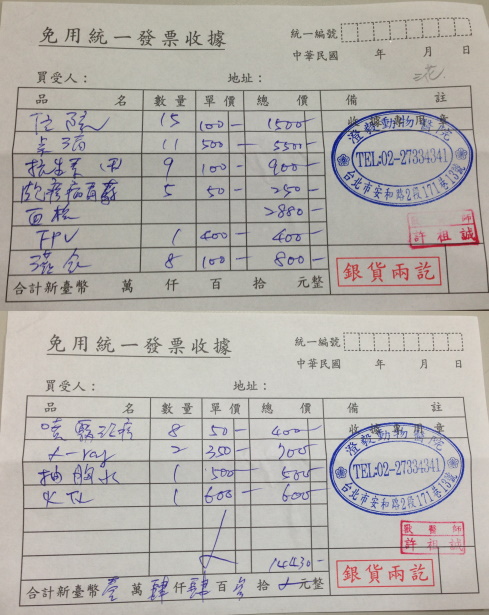 免用統一發票收據
統一編號
中華民國 年 月 日
買受人： 地址：
品名 數量 單價 總價 備註
收據專用章
住院 15 100- 1500-
點滴 11 500- 5500-
9 100- 900-
5 50- 250-
2880-
FPV 1 400- 400-
灌食 8 100- 800-
澄毅動物醫院
TEL:02-27334341
台北市安和路2段171巷13號
獸醫師
許祖誠
銀貨兩訖
合計新臺幣 萬 仟 百 拾 元整
免用統一發票收據
統一編號
中華民國 年 月 日
買受人： 地址：
品名 數量 單價 總價 備註
收據專用章
噴霧治療 8 50- 400-
X-ray 2 350- 700-
抽胸水 1 500- 500-
火化 1 600- 600-
14430-
澄毅動物醫院
TEL:02-27334341
台北市安和路2段171巷13號
獸醫師
許祖誠
銀貨兩訖
合計新臺幣壹萬肆仟肆百參拾 元整